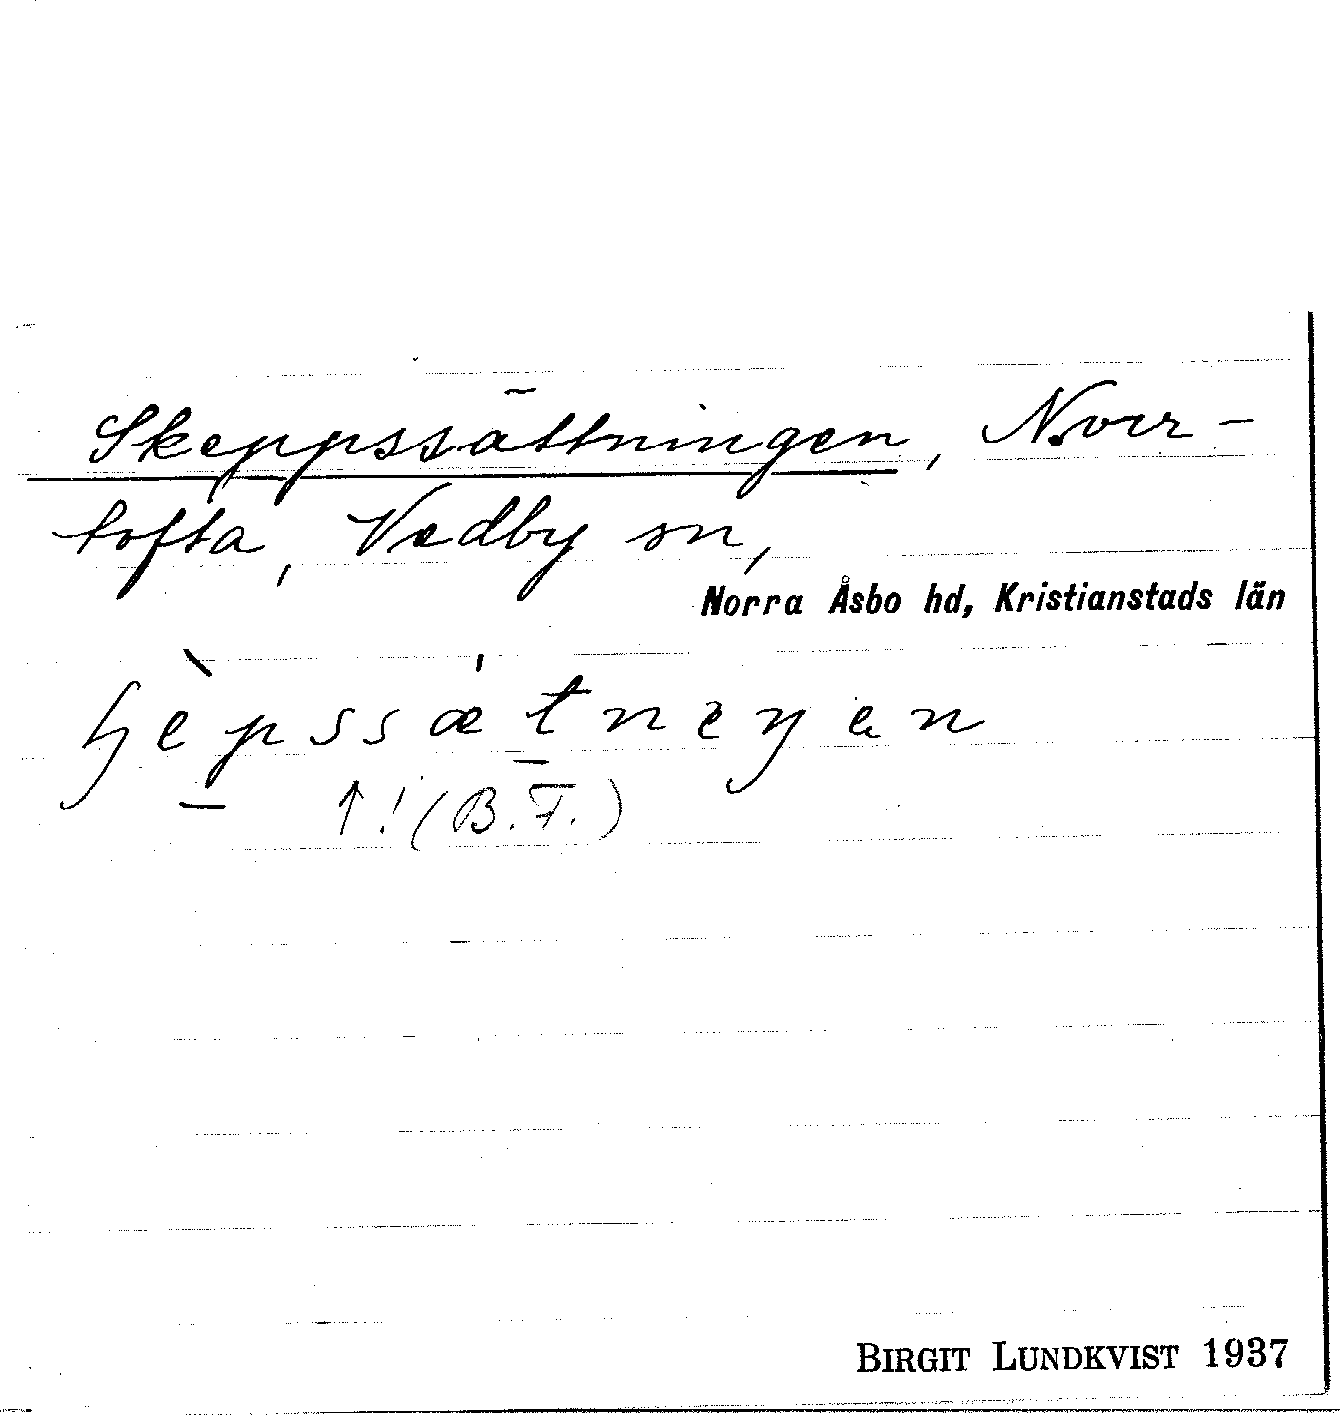 Skeppssättningen, N. Vir-
tofta, Vedby sn,
Norra Åsbo hd, Kristianstads län
↑! (B.F.)
BIRGIT LUNDKVIST 1937